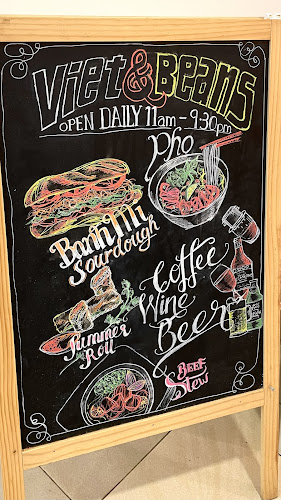 Viet & Beans
OPEN DAILY 11am - 9:30pm
Pho
Banh Mi
Sourdough
Coffee
Wine
Beer
Summer
Roll
BEEF
Stew